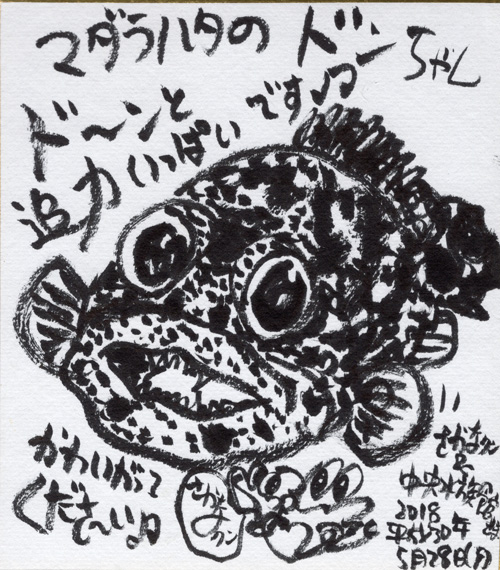 マダラハタの ドン ちゃん
ド〜ンと
迫力いっぱいです♪
かわいがって
くださ〜い♪
さかなクン
さかなクン
&
中央水族館
2018
平成30年
5月28日(月)